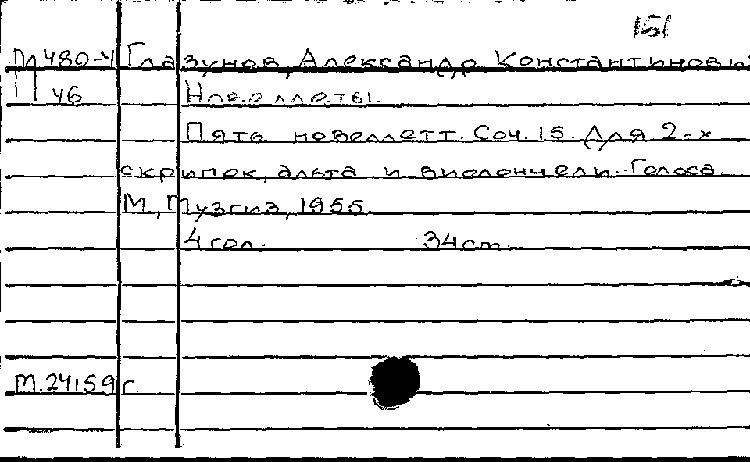 151
П 480-4 Глазунов, Александр Константинови
46 Новеллеты.
Пять новеллетт. Соч. 15. Для 2-х
скрипок, альта и виолончели. Голоса.
М., Музгиз, 1955
4 гол. 34 см.
М.24159 г